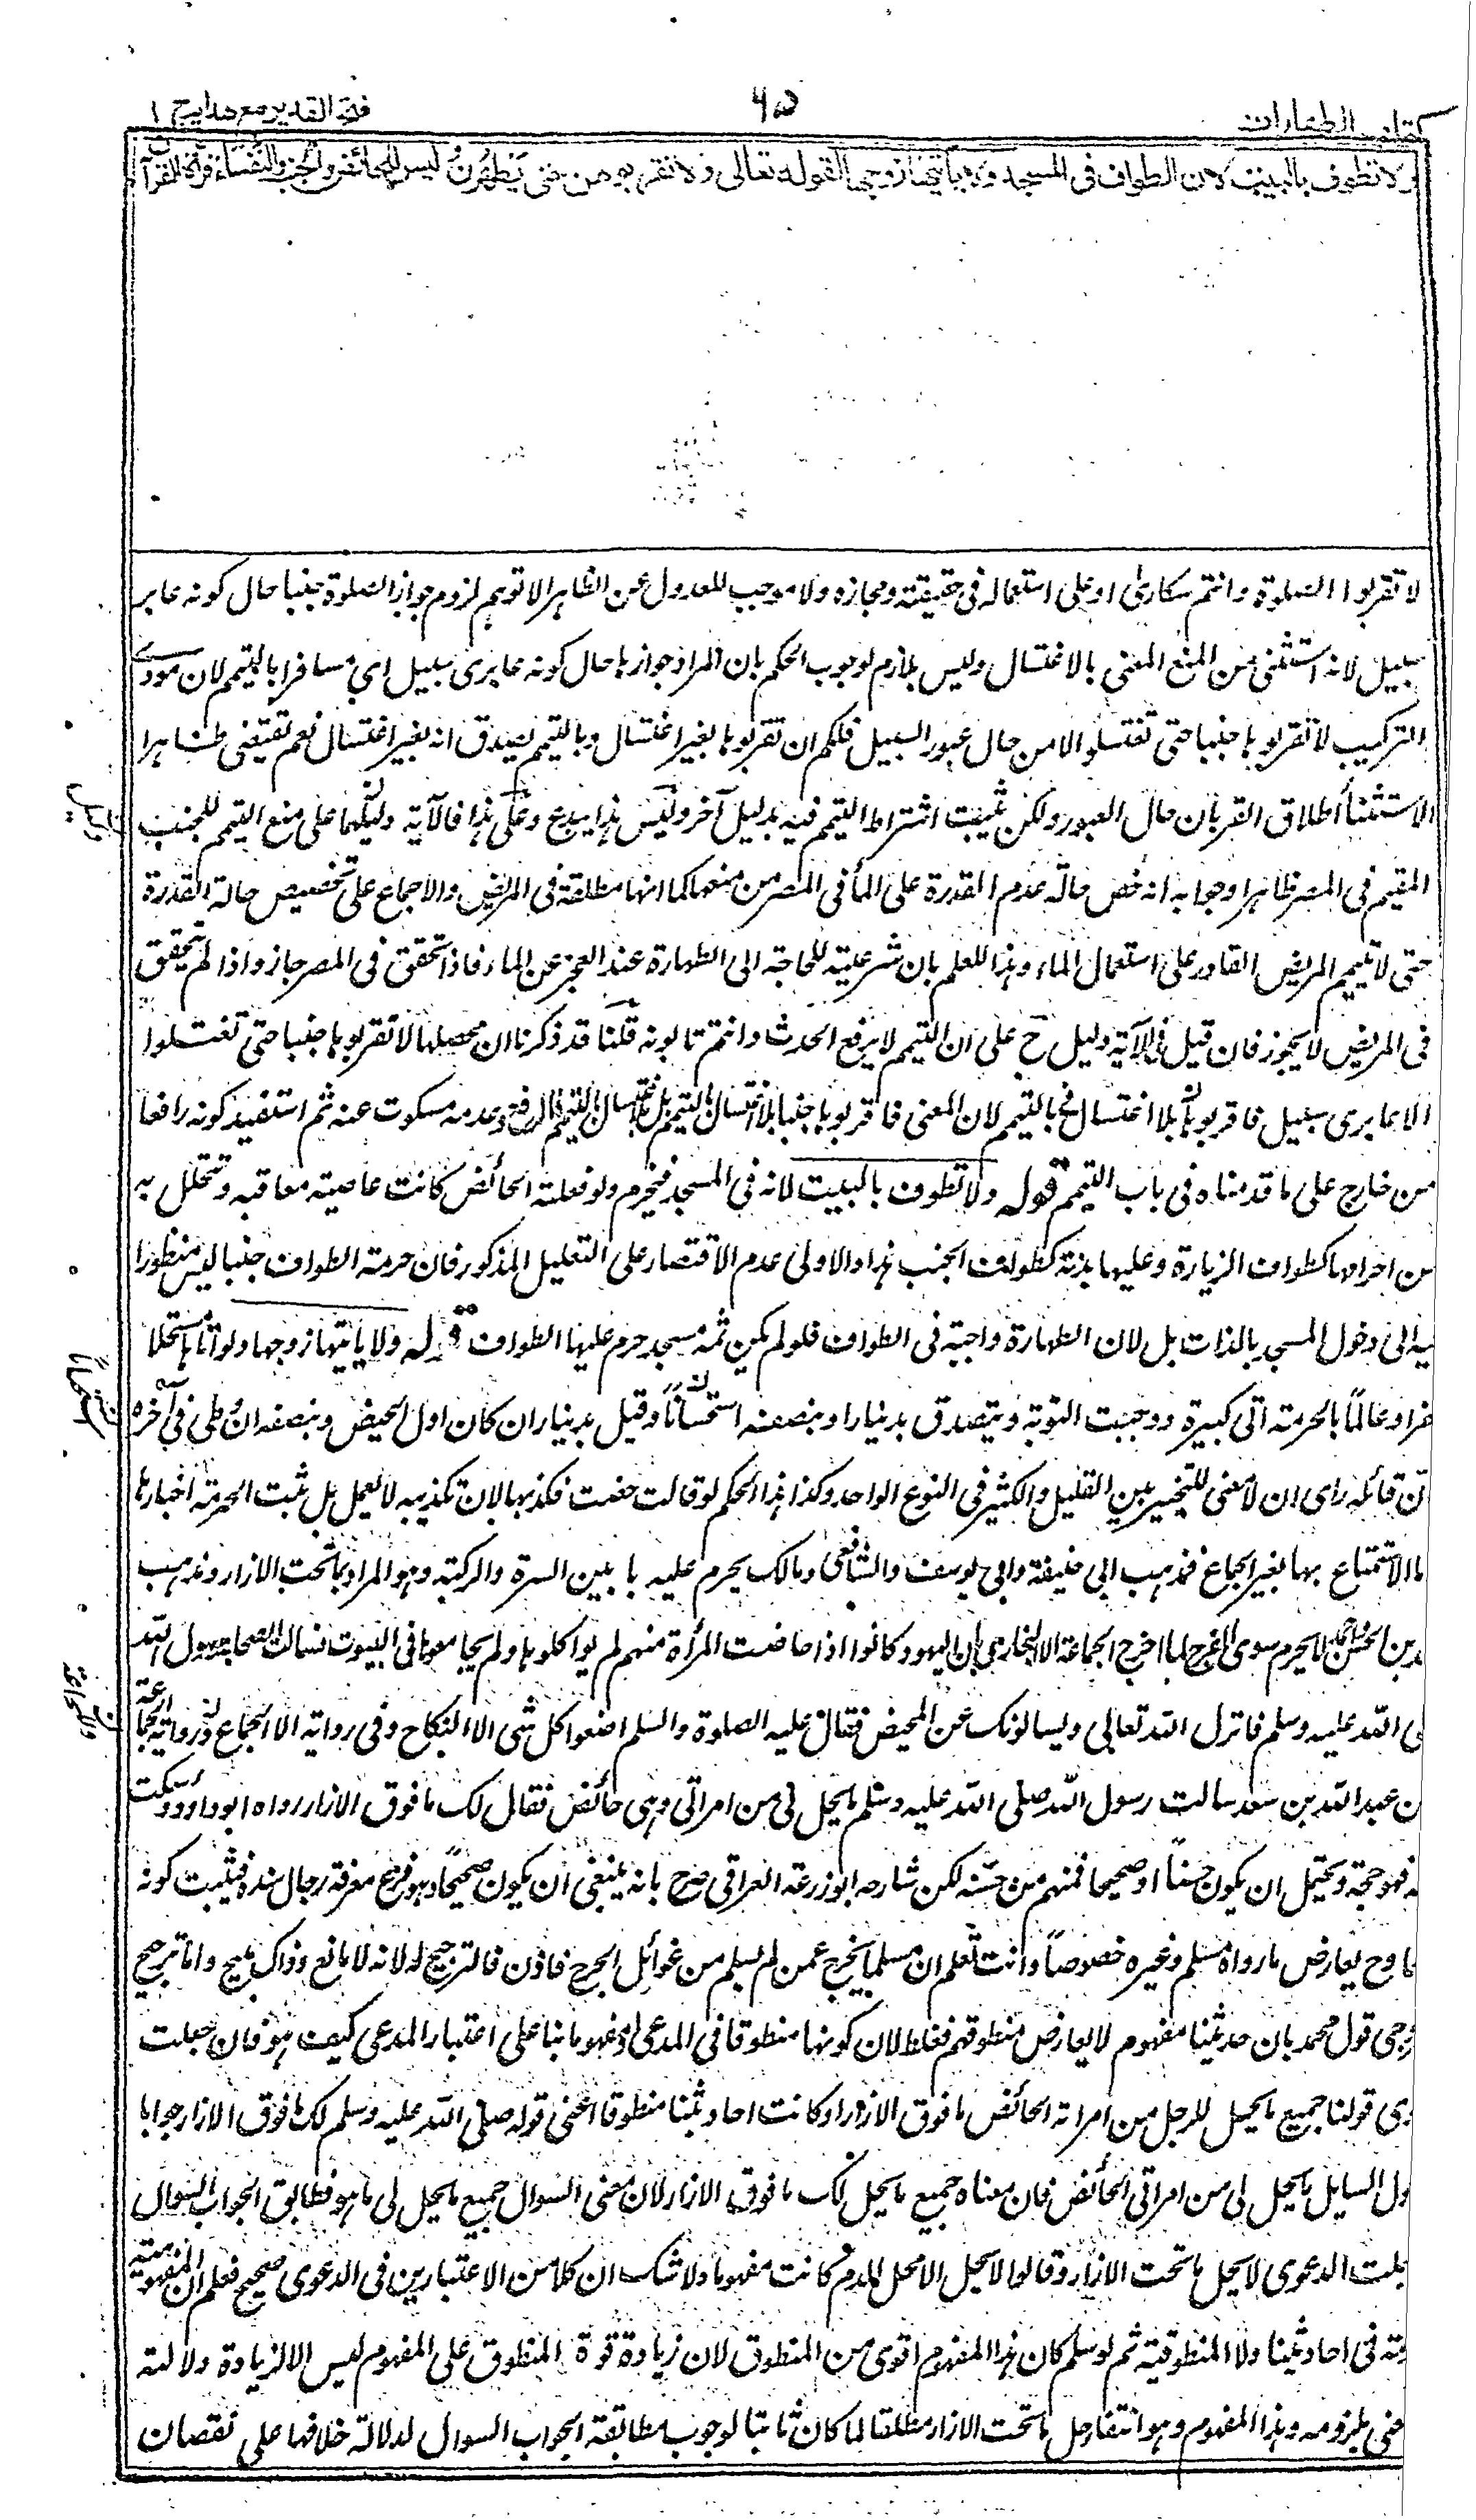 كتاب الطهارات
٦٥
فتح القدير مع هدايه ج ١
ولا تطوف بالبيت لان الطواف فى المسجد ولا يأتيها زوجها لقوله تعالى ولا تقربوهن حتى يَطْهُرْنَ ليس للحائض والجنب والنفساء قرأة القرآن
لا تقربوا الصلوة وانتم سكارى او على استعماله فى حقيقته ومجازه ولا موجب للعدول عن الظاهر الا توهم لزوم جواز الصلوة جنبا حال كونه عابر
سبيل لانه استثنى من المنع المغيى بالاغتسال وليس بلازم لوجوب الحكم بان المراد جوازها حال كونه عابرى سبيل اي مسافرا بالتيمم لان مودى
التركيب لا تقربوها جنبا حتى تغتسلوا الا من حال عبور السبيل فلكم ان تقربوها بغير اغتسال وبالتيمم يصدق انه بغير اغتسال نعم تقتضى ظاهرا
الاستثناأطلاق القربان حال العبور ولكن ثبت اشتراط التيمم فيه بدليل آخر وليس هذا ببدع وعلى هذا فالآية دليلهما على منع التيمم للجنب
المقيم فى المصر ظاهرا وجوابه انه خص حالة عدم القدرة على المأ فى المصر من منعها كما انها مطلقة فى المريض والاجماع على تخصيص حالة القدرة
حتى لا تيمم المريض القادر على استعمال الماء وهذا للعلم بان شرعيته للحاجة الى الطهارة عند العجز عن الماء فاذا تحقق فى المصر جاز واذا لم يتحقق
فى المريض لا يجوز فان قيل فى الآية دليل ح على ان التيمم لا يرفع الحدث وانتم تابونه قلنا قد ذكرنا ان محصلها لا تقربوها جنبا حتى تغتسلوا
الا عابرى سبيل فاقربوها بلا اغتسال بالتيمم لان المعنى فاقربوها جنبا بلا اغتسال بالتيمم بل بلا اغتسال بالتيمم فالرفع وعدمه مسكوت عنه ثم استفيد كونه رافعا
من خارج على ما قدمناه فى باب التيمم قوله ولا تطوف بالبيت لانه فى المسجد فيحرم ولو فعلته الحائض كانت عاصية معاقبة وتتحلل به
من احرامها كطواف الزيارة وعليها بدنة كطواف الجنب هذا والاولى عدم الاقتصار على التعليل المذكور فان حرمة الطواف جنبا ليس منظورا
فيه الى دخول المسجد بالذات بل لان الطهارة واجبة فى الطواف فلو لم يكن ثمه مسجد حرم عليها الطواف قوله ولا ياتيها زوجها ولو اتاها مستحلا
كفر او عالمًا بالحرمة اتى كبيرة ووجبت التوبة ويتصدق بدينار او بنصفه استحسانًا وقيل بدينار ان كان اول الحيض وبنصفه ان وطى فى آخره
كان قائله راى ان لا معنى للتخيير بين القليل والكثير فى النوع الواحد وكذا هذا الحكم لو قالت حضت فكذبها لان تكذيبه لا يعمل بل تثبت الحرمة اخبارها
اما الاستمتاع بها بغير الجماع فمذهب ابى حنيفة وابى يوسف والشافعى ومالك يحرم عليه ما بين السرة والركبة وهو المراد بما تحت الازار ومذهب
محمد بن الحسن واحمد لا يحرم سوى الفرج لما اخرج الجماعة الا البخارى ان اليهود كانوا اذا حاضت المرأة منهم لم يواكلوها ولم يجامعوها فى البيوت فسالت الصحابة رسول الله
صلى الله عليه وسلم فانزل الله تعالى ويسالونك عن المحيض فقال عليه الصلوة والسلم اصنعوا كل شى الا النكاح وفى رواية الا الجماع
عن عبد الله بن سعد سالت رسول الله صلى الله عليه وسلم ما يحل لى من امراتى وهى حائض فقال لك ما فوق الازار رواه ابوداؤد وسكت
عنه فهو حجة ويحتمل ان يكون حسناً او صحيحا فمنهم من حسّنه لكن شارحه ابوزرعة العراقى صرح بانه ينبغى ان يكون صحيحًا وهو فرع معرفة رجال سنده فثبت كونه
وح يعارض ما رواه مسلم وغيره خصوصاً وانت تعلم ان مسلما يخرج عمن لم يسلم من غوائل الجرح فاذن فالترجيح له لانه لا مانع وذاك مبيح واما ترجيح
قول محمد بان حديثنا مفهوم لا يعارض منطوقهم فغلط لان كونها منطوقا فى المدعى او مفهوما بنا على اعتبار المدعى كيف هو فان جعلت
قولنا جميع ما يحل للرجل من امراته الحائض ما فوق الازار كانت احاديثنا منطوقا اعنى قوله صلى الله عليه وسلم لك ما فوق الازار جوابا
السايل ما يحل لى من امراتى الحائض فان معناه جميع ما يحل لك ما فوق الازار لان معنى السوال جميع ما يحل لى ما هو فطابق الجواب السوال
الدعوى لا يحل ما تحت الازار وقالوا لا يحل الا محل الدم كانت مفهوما ولا شك ان كلا من الاعتبارين فى الدعوى صحيح فعلم ان المفهومية
فى احاديثنا ولا المنطوقية ثم لو سلم كان هذا المفهوم اقوى من المنطوق لان زيادة قوة المنطوق على المفهوم ليس الا لزيادة دلالته
بلزومه وهذا المفهوم وهو انتفا حل ما تحت الازار مطلقا لما كان ثابتا لوجوب مطابقة الجواب السوال لدلالة خلافها على نقصان